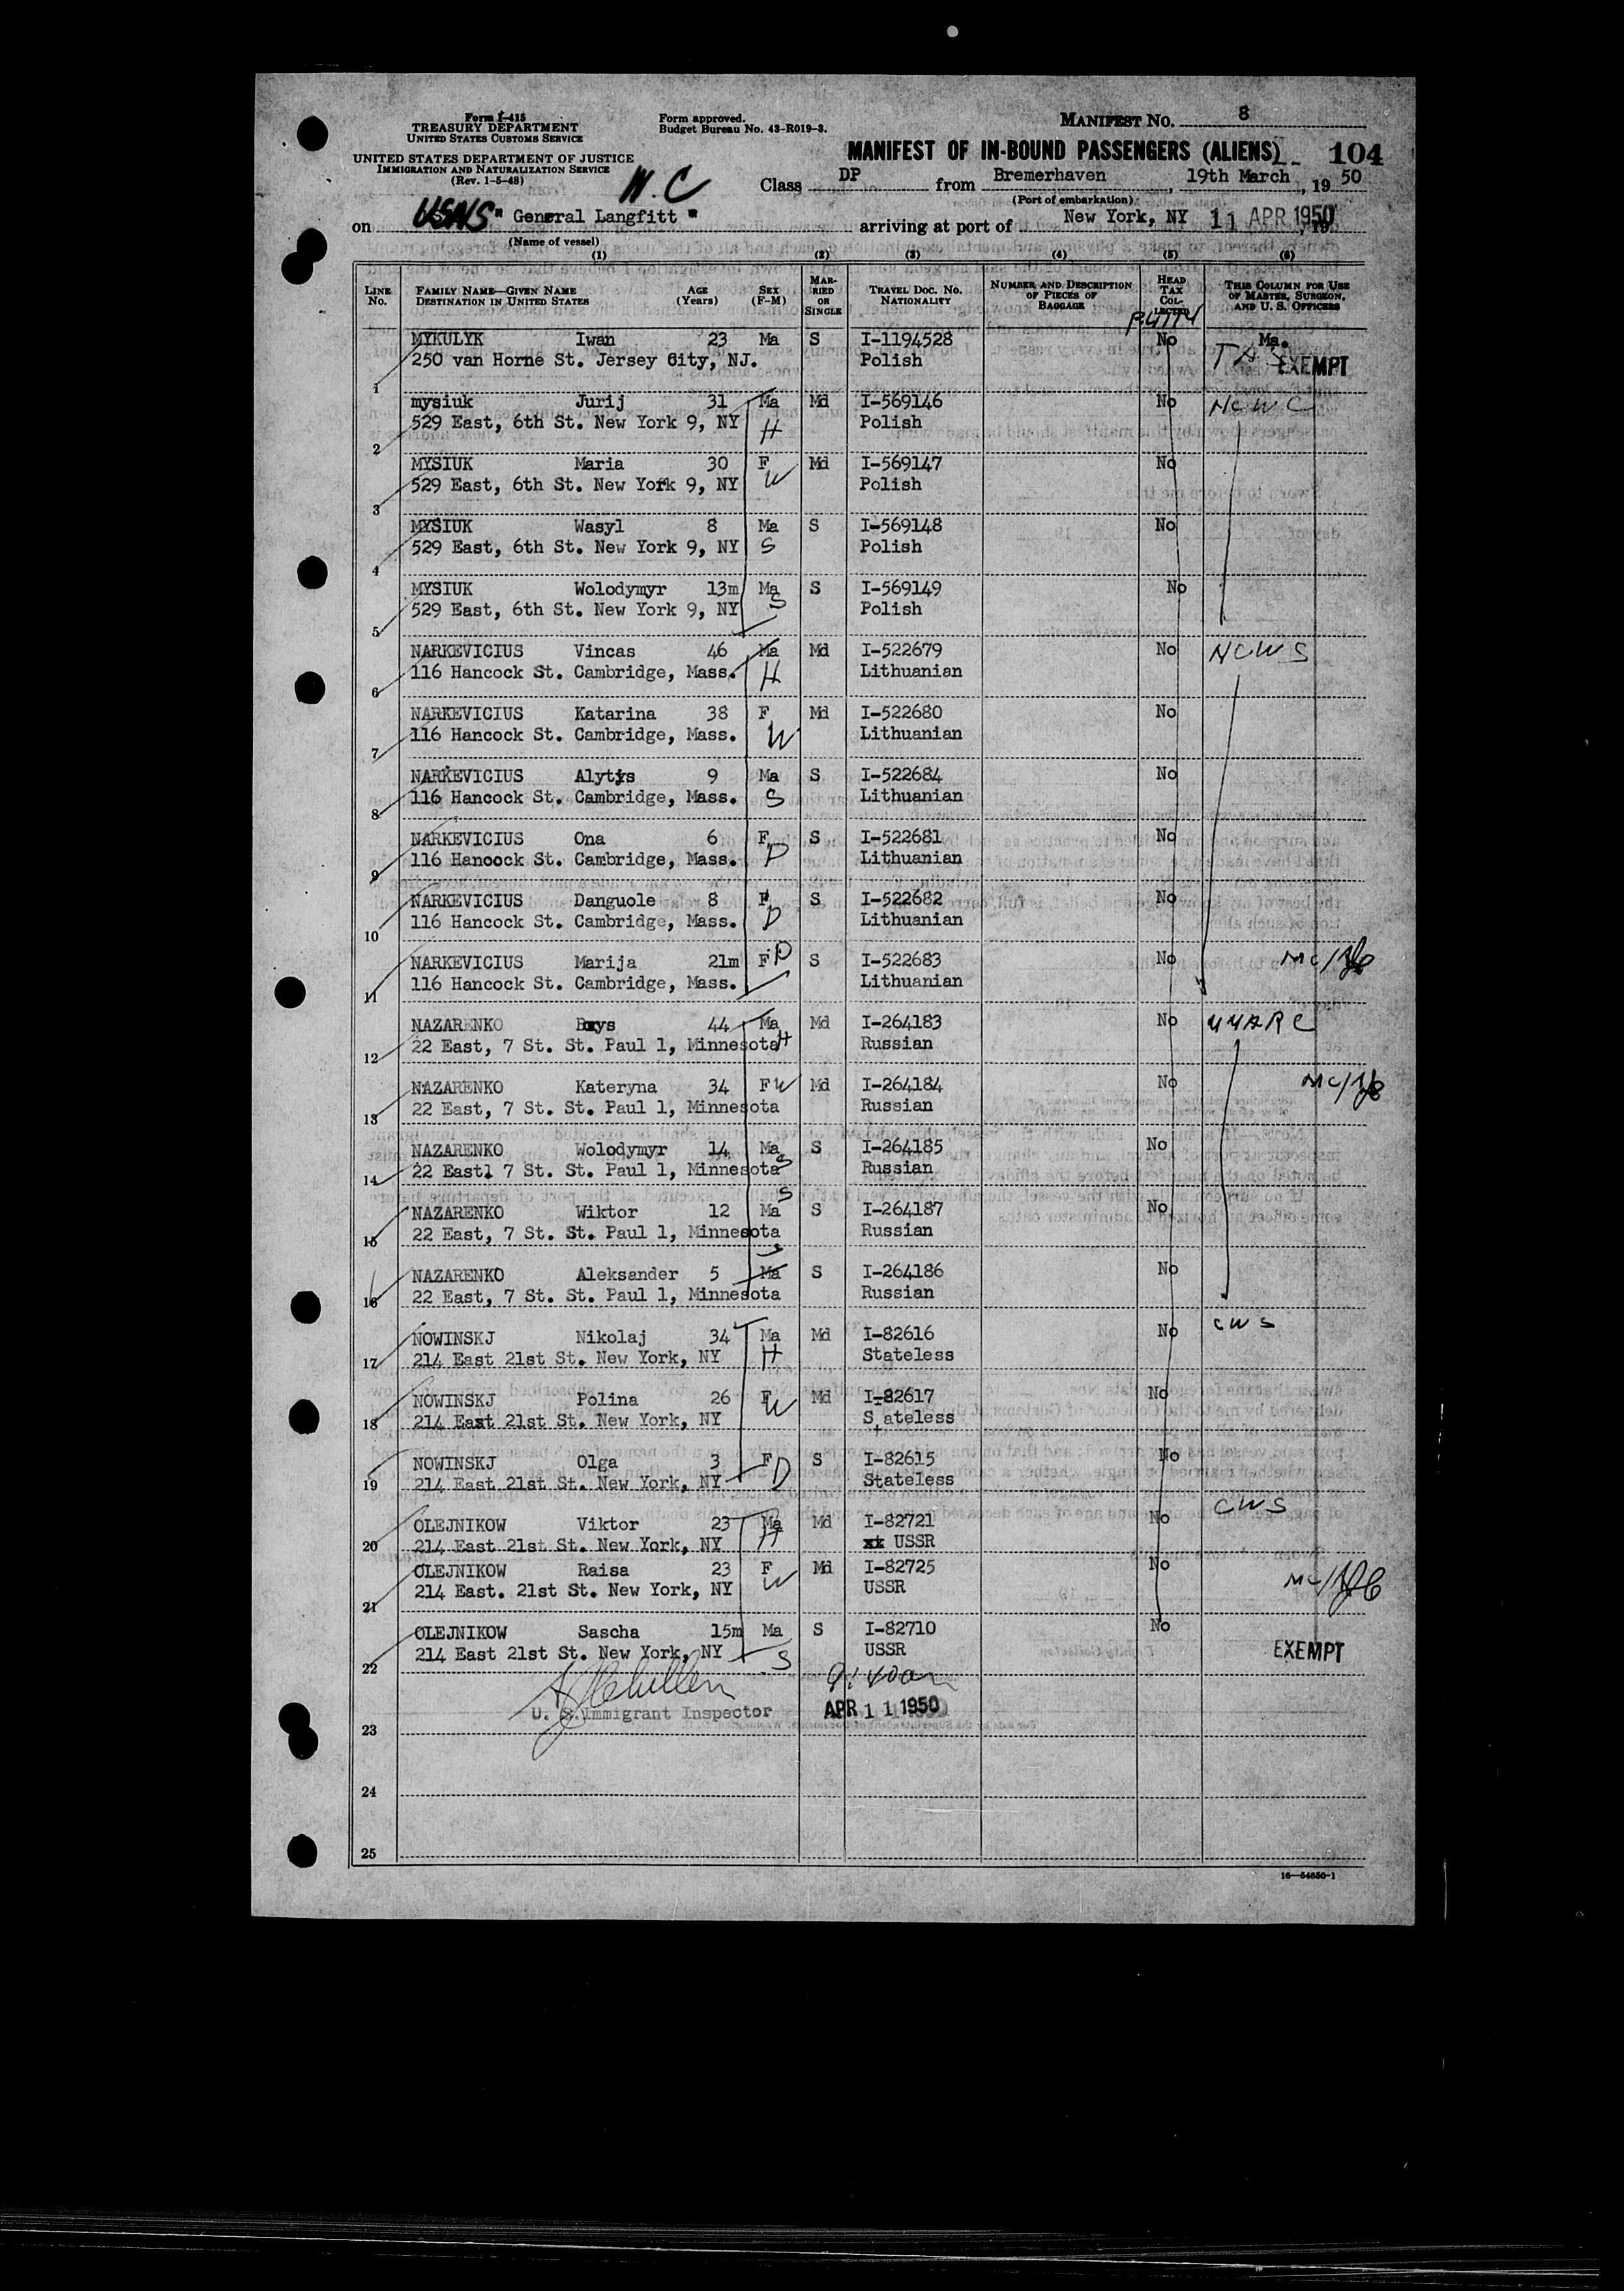 Form I-415
TREASURY DEPARTMENT
UNITED STATES CUSTOMS SERVICE
UNITED STATES DEPARTMENT OF JUSTICE
IMMIGRATION AND NATURALIZATION SERVICE
(Rev. 1-5-48)
Form approved.
Budget Bureau No. 43-R019-3.
MANIFEST NO. 8
MANIFEST OF IN-BOUND PASSENGERS (ALIENS) 104
W.C
Class DP from Bremerhaven, 19th March, 1950
(Port of embarkation)
on USNS " General Langfitt " arriving at port of New York, NY 11 APR 1950, 19
(Name of vessel)
(1) (2) (3) (4) (5) (6)
LINE No. FAMILY NAME—GIVEN NAME DESTINATION IN UNITED STATES AGE (Years) SEX (F-M) MARRIED OR SINGLE TRAVEL DOC. NO. NATIONALITY NUMBER AND DESCRIPTION OF PIECES OF BAGGAGE HEAD TAX COLLECTED THIS COLUMN FOR USE OF MASTER, SURGEON, AND U. S. OFFICERS
MYKULYK Iwan 23 Ma S I-1194528 No Ma.
1 250 van Horne St. Jersey City, NJ. Polish EXEMPT
mysiuk Jurij 31 Ma Md I-569146 No NCWC
2 529 East, 6th St. New York 9, NY H Polish
MYSIUK Maria 30 F Md I-569147 No
3 529 East, 6th St. New York 9, NY W Polish
MYSIUK Wasyl 8 Ma S I-569148 No
4 529 East, 6th St. New York 9, NY S Polish
MYSIUK Wolodymyr 13m Ma S I-569149 No
5 529 East, 6th St. New York 9, NY S Polish
NARKEVICIUS Vincas 46 Ma Md I-522679 No NCWS
6 116 Hancock St. Cambridge, Mass. H Lithuanian
NARKEVICIUS Katarina 38 F Md I-522680 No
7 116 Hancock St. Cambridge, Mass. W Lithuanian
NARKEVICIUS Alytis 9 Ma S I-522684 No
8 116 Hancock St. Cambridge, Mass. S Lithuanian
NARKEVICIUS Ona 6 F S I-522681 No
9 116 Hancock St. Cambridge, Mass. D Lithuanian
NARKEVICIUS Danguole 8 F S I-522682 No
10 116 Hancock St. Cambridge, Mass. D Lithuanian
NARKEVICIUS Marija 21m F D S I-522683 No
11 116 Hancock St. Cambridge, Mass. Lithuanian
NAZARENKO Borys 44 Ma Md I-264183 No UUARC
12 22 East, 7 St. St. Paul 1, Minnesota H Russian
NAZARENKO Kateryna 34 F W Md I-264184 No
13 22 East, 7 St. St. Paul 1, Minnesota Russian
NAZARENKO Wolodymyr 14 Ma S I-264185 No
14 22 East1 7 St. St. Paul 1, Minnesota S Russian
NAZARENKO Wiktor 12 Ma S S I-264187 No
15 22 East, 7 St. St. Paul 1, Minnesota Russian
NAZARENKO Aleksander 5 Ma S I-264186 No
16 22 East, 7 St. St. Paul 1, Minnesota Russian
NOWINSKJ Nikolaj 34 Ma Md I-82616 No CWS
17 214 East 21st St. New York, NY H Stateless
NOWINSKJ Polina 26 F Md I-82617 No
18 214 East 21st St. New York, NY W Stateless
NOWINSKJ Olga 3 F S I-82615 No
19 214 East 21st St. New York, NY D Stateless
OLEJNIKOW Viktor 23 Ma Md I-82721 No CWS
20 214 East 21st St. New York, NY H USSR
OLEJNIKOW Raisa 23 F Md I-82725 No
21 214 East. 21st St. New York, NY W USSR
OLEJNIKOW Sascha 15m Ma S I-82710 No
22 214 East 21st St. New York, NY S USSR EXEMPT
U. S. Immigrant Inspector APR 11 1950
23
24
25
16—54650-1